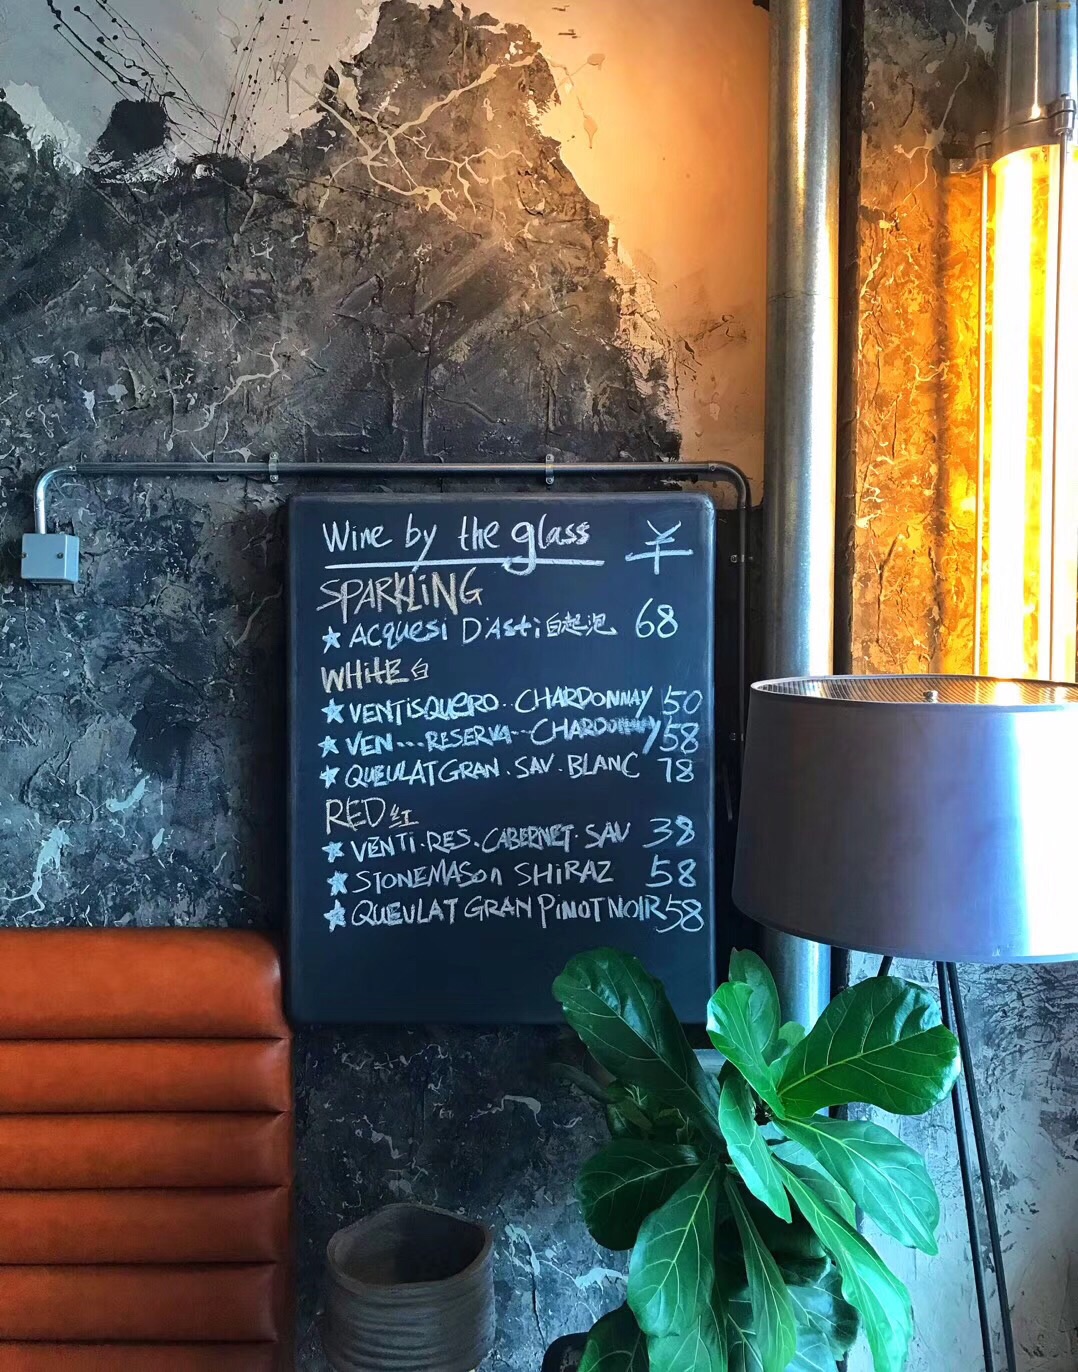 Wine by the glass ¥
SPARKLiNG
★ ACQUESi D'ASti 白起泡 68
WHitE 白
★ VENTiSQUERO. CHARDONNAY 50
★ VEN... RESERVA.. CHARDONNAY 58
★ QUEULAT GRAN. SAV. BLANC 78
RED 红
★ VENTi. RES. CABERNET. SAV 38
★ STONEMASon SHiRAZ 58
★ QUEULAT GRAN PiNOT NOIR 58